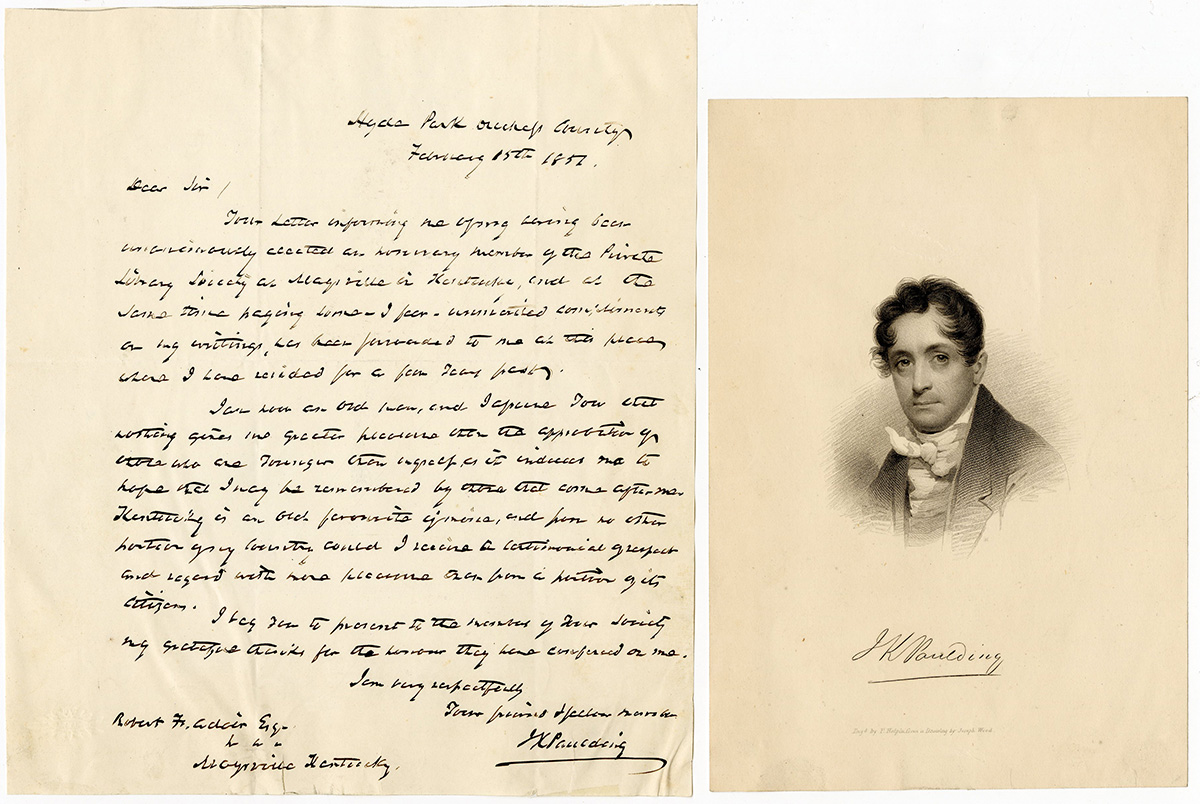 Hyde Park Duchess County
February 15th 1851.
Dear Sir,
Your Letter informing me of my having been
unanimously elected an honorary member of the Private
Library Society at Maysville in Kentucky, and at the
same time paying some - I fear - unmerited compliments
on my writings, has been forwarded to me at this place,
where I have resided for a few Years past.
I am now an Old man, and I assure You that
nothing gives me greater pleasure than the approbation of
those who are Younger than myself, as it induces me to
hope that I may be remembered by those that come after me
Kentucky is an Old favourite of mine, and from no other
portion of my Country could I receive a testimonial of respect
and regard with more pleasure than from a portion of its
Citizens.
I beg You to present to the member of Your Society
my grateful thanks for the honour they have conferred on me.
I am very respectfully
Your friend &
JK Paulding
Robert Esq.
Maysville Kentucky.
JK Paulding
Engd. by F. Halpin from a Drawing by Joseph Wood